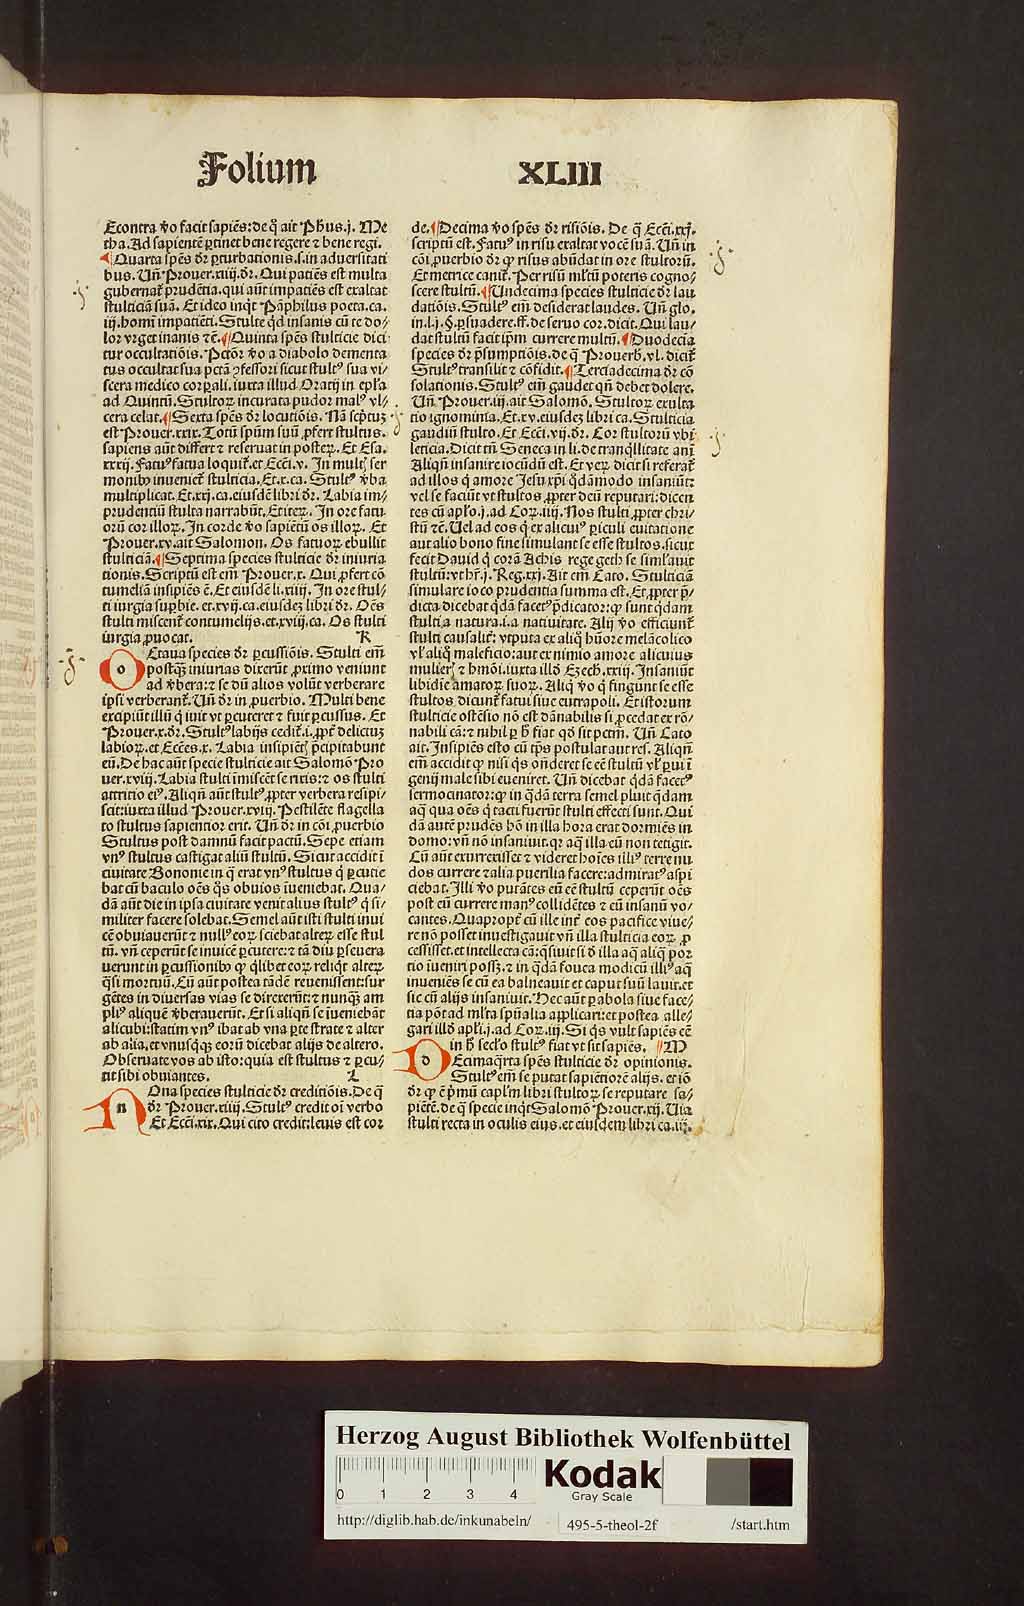 Folium XLIII
Econtra v̄o facit sapiēs: de q̄ ait Ph̄us.j. Me
tha. Ad sapientē ꝑtinet bene regere ⁊ bene regi.
¶Quarta spēs dr̄ ꝑturbationis.s.in aduersitati
bus. Un̄ Prouer.xiiij.dr̄. Qui patiēs est multa
gubernat᷑ prudētia. qui aūt impatiēs est exaltat
stulticiā suā. Et ideo inq̇t Pāphilus poeta.ca.
iij. homī impatiēti. Stulte qd̄ insanis cū te do/
lor vrget inanis ⁊c̄.¶Quinta spēs stulticie dici
tur occultatiōis. Pctōr v̄o a diabolo dementa
tus occultat sua pctā ꝯfessori sicut stultꝰ sua vi/
scera medico corꝑali. iuxta illud Oratij in epl̄a
ad Quintū. Stultoꝝ incurata pudor malꝰ vl/
cera celat.¶Sexta spēs dr̄ locutiōis. Nā scꝑtuꝫ
est Prouer.xxix. Totū spūm suū ꝓfert stultus.
sapiens aūt differt ⁊ reseruat in posteꝝ. Et Esa.
xxxij. Fatuꝰ fatua loquit᷑. et Ecci̅.v. In multꝭ ser
monibꝰ inueniet᷑ stulticia. Et.x.ca. Stultꝰ v̄ba
multiplicat. Et.xxj.ca.eiusdē libri dr̄. Labia im/
prudentiū stulta narrabūt. Et iteꝝ. In ore fatu
orū cor illoꝝ. In corde v̄o sapiētū os illoꝝ. Et
Prouer.xv.ait Salomon. Os fatuoꝝ ebullit
stulticiā.¶Septima species stulticie dr̄ iniuria
tionis. Scriptū est em̄ Prouer.x. Qui ꝓfert cō
tumeliā insipiēs ē. Et eiusdē li.xiiij. In ore stul/
ti iurgia suꝑbie. et.xvij.ca.eiusdeꝫ libri dr̄. Oēs
stulti miscent᷑ contumelijs. et.xviij.ca. Os stulti
iurgia ꝓuocat. K
o Ctaua species dr̄ ꝑcussiōis. Stulti em̄
postq̄ꝫ iniurias dixerūt ꝓximo veniunt
ad v̄bera: ⁊ se dū alios volūt verberare
ipsi verberant᷑. Un̄ dr̄ in ꝓuerbio. Multi bene
excipiūt illū q̇ iuit vt ꝑcuteret ⁊ fuit ꝑcussus. Et
Prouer.x.dr̄. Stultꝰ labijs cedit᷑.i.ꝓpt᷑ delictuꝫ
labioꝝ. et Ecces.x. Labia insipiētꝭ p̄cipitabunt
eū. De hac aūt specie stulticie ait Salomō Pro
uer.xviij. Labia stulti īmiscēt se rixis: ⁊ os stulti
attritio eiꝰ. Aliqn̄ aūt stultꝰ ꝓpter verbera resipi/
scit: iuxta illud Prouer.xviij. Pestilēte flagella
to stultus sapientior erit. Un̄ dr̄ in cōi ꝓuerbio
Stultus post damnū facit pactū. Sepe etiam
vnꝰ stultus castigat aliū stultū. Sicut accidit ī
ciuitate Bononie in q̄ erat vnꝰ stultus q̇ ꝑcutie
bat cū baculo oēs q̇s obuios īueniebat. Qua/
dā aūt die in ipsa ciuitate venit alius stultꝰ q̇ si/
militer facere solebat. Semel aūt isti stulti inui
cē obuiauerūt ⁊ nullꝰ eoꝝ sciebat alteꝝ esse stul
tū. vn̄ ceperūt se inuicē ꝑcutere: ⁊ tā diu ꝑseuera
uerunt in ꝑcussionibꝰ ꝙ q̇libet eoꝝ reliq̇t alteꝝ
q̄si mortuū. Cū aūt postea tādē reuenissent: sur
gētes in diuersas vias se direxerūt: ⁊ nunq̄ꝫ am
pliꝰ aliquē v̄berauerūt. Et si aliqn̄ se īueniebāt
alicubi: statim vnꝰ ibat ab vna ꝑte strate ⁊ alter
ab alia. et vnusq̇sqꝫ eorū dicebat alijs de altero.
Obseruate vos ab isto: quia est stultus ⁊ ꝑcu/
tit sibi obuiantes. L
n Ona species stulticie dr̄ creditiōis. De q̄
dr̄ Prouer.xiiij. Stultꝰ credit oī verbo
Et Ecci̅.xix. Qui cito credit: leuis est cor
de.¶Decima v̄o spēs dr̄ risiōis. De q̄ Ecci̅.xxj.
scriptū est. Fatuꝰ in risu exaltat vocē suā. Un̄ in
cōi ꝓuerbio dr̄ ꝙ risus abūdat in ore stultorū.
Et metrice canit᷑. Per risū ml̄tū poteris cogno/
scere stultū.¶Undecima species stulticie dr̄ lau
datiōis. Stultꝰ em̄ desiderat laudes. Un̄ glo.
in.l.j.§.ꝑsuadere.ff.de seruo cor.dicit. Qui lau/
dat stultū facit ip̄m currere multū.¶Duodecīa
species dr̄ p̄sumptiōis. de q̄ Prouerb̄.vl.dicit᷑
Stultꝰ transilit ⁊ cōfidit.¶Terciadecima dr̄ cō
solationis. Stultꝰ em̄ gaudet qn̄ debet dolere.
Un̄ Prouer.iij.ait Salomō. Stultoꝝ exulta
tio ignominia. Et.xv.eiusdeꝫ libri ca. Stulticia
gaudiū stulto. Et Ecci̅.vij.dr̄. Cor stultorū vbi
leticia. Dicit tn̄ Seneca in li.de tranq̇llitate anī
Aliqn̄ insanire iocūdū est. Et veꝝ dicit si referat᷑
ad illos q̇ amore Jesu xp̄i q̇dāmodo insaniūt:
vel se faciūt vt stultos ꝓpter deū reputari: dicen
tes cū apl̄o.j.ad Coꝝ.iiij. Nos stulti ꝓpter chri/
stū ⁊c̄. Uel ad eos q̇ ex alicuiꝰ ꝑiculi euitatione
aut alio bono fine simulant se esse stultos. sicut
fecit Dauid q̇ corā Achis rege geth se simlauit
stultū: vt hr̄.j. Reg.xxj. Ait em̄ Cato. Stulticiā
simulare loco prudentia summa est. Et ꝓpter p̄/
dicta dicebat q̇dā facetꝰ p̄dicator: ꝙ sunt q̇dam
stulti a natura.i.a natiuitate. Alij v̄o efficiunt᷑
stulti causalit᷑: vtputa ex aliq̄ hūore melācolico
vl̓ aliq̄ maleficio: aut ex nimio amore alicuius
mulierꝭ ⁊ hmōi. iuxta illd̓ Ezech̓.xxiij. Insaniūt
libidīe amatoꝝ suoꝝ. Aliq̇ v̄o q̇ fingunt se esse
stultos dicunt᷑ fatui siue eutrapoli. Et istorum
stulticie ostēsio nō est dānabilis si ꝓcedat ex rō/
nabili cā: ⁊ nihil ꝑ h̓ fiat qd̓ sit pctm̄. Un̄ Cato
ait. Insipiēs esto cū tp̄s postulat aut res. Aliqn̄
em̄ accidit ꝙ nisi q̇s on̄deret se eē stultū vl̓ ꝑui ī
genij male sibi eueniret. Un̄ dicebat q̇dā facetꝰ
sermocinator: ꝙ in q̇dā terra semel pluit q̇dam
aq̄ qua oēs q̇ tacti fuerūt stulti effecti sunt. Qui
dā autē prudēs hō in illa hora erat dormiēs in
domo: vn̄ nō insaniuit. qꝛ aq̄ illa eū non tetigit.
Cū aūt exurrexisset ⁊ videret hoīes illiꝰ terre nu
dos currere ⁊ alia puerilia facere: admiratꝰ aspi
ciebat. Illi v̄o putātes eū eē stultū ceperūt oēs
post eū currere manꝰ collidētes ⁊ eū insanū vo/
cantes. Quapropt᷑ cū ille int᷑ eos pacifice viue/
re nō posset inuestigauit vn̄ illa stulticia eoꝝ ꝓ
cessisset. et intellecta cā: q̄siuit si d̓ illa aq̄ aliq̄ por
tio īueniri possꝫ. ⁊ in q̇dā fouea modicū illiꝰ aq̄
inueniēs se cū ea balneauit et caput suū lauit. et
sic cū alijs insaniuit. Hec aūt ꝑabola siue face/
tia pōt ad ml̄ta spūalia applicari: et postea alle/
gari illd̓ apl̓i.j.ad Coꝝ.iij. Si q̇s vult sapiēs eē
in h̓ seclo stultꝰ fiat vt sit sapiēs. ¶M
d Ecimaq̄rta spēs stulticie dr̄ opinionis.
Stultꝰ em̄ se putat sapientiorē alijs. et iō
dr̄ ꝙ ē p̄mū capl̓m libri stultoꝝ se reputare sa/
piētē. de q̄ specie inq̇t Salomō Prouer.xij. Uia
stulti recta in oculis eius. et eiusdem libri ca.iij.
Herzog August Bibliothek Wolfenbüttel
0 1 2 3 4
Kodak
Gray Scale
http://diglib.hab.de/inkunabeln/ 495-5-theol-2f /start.htm